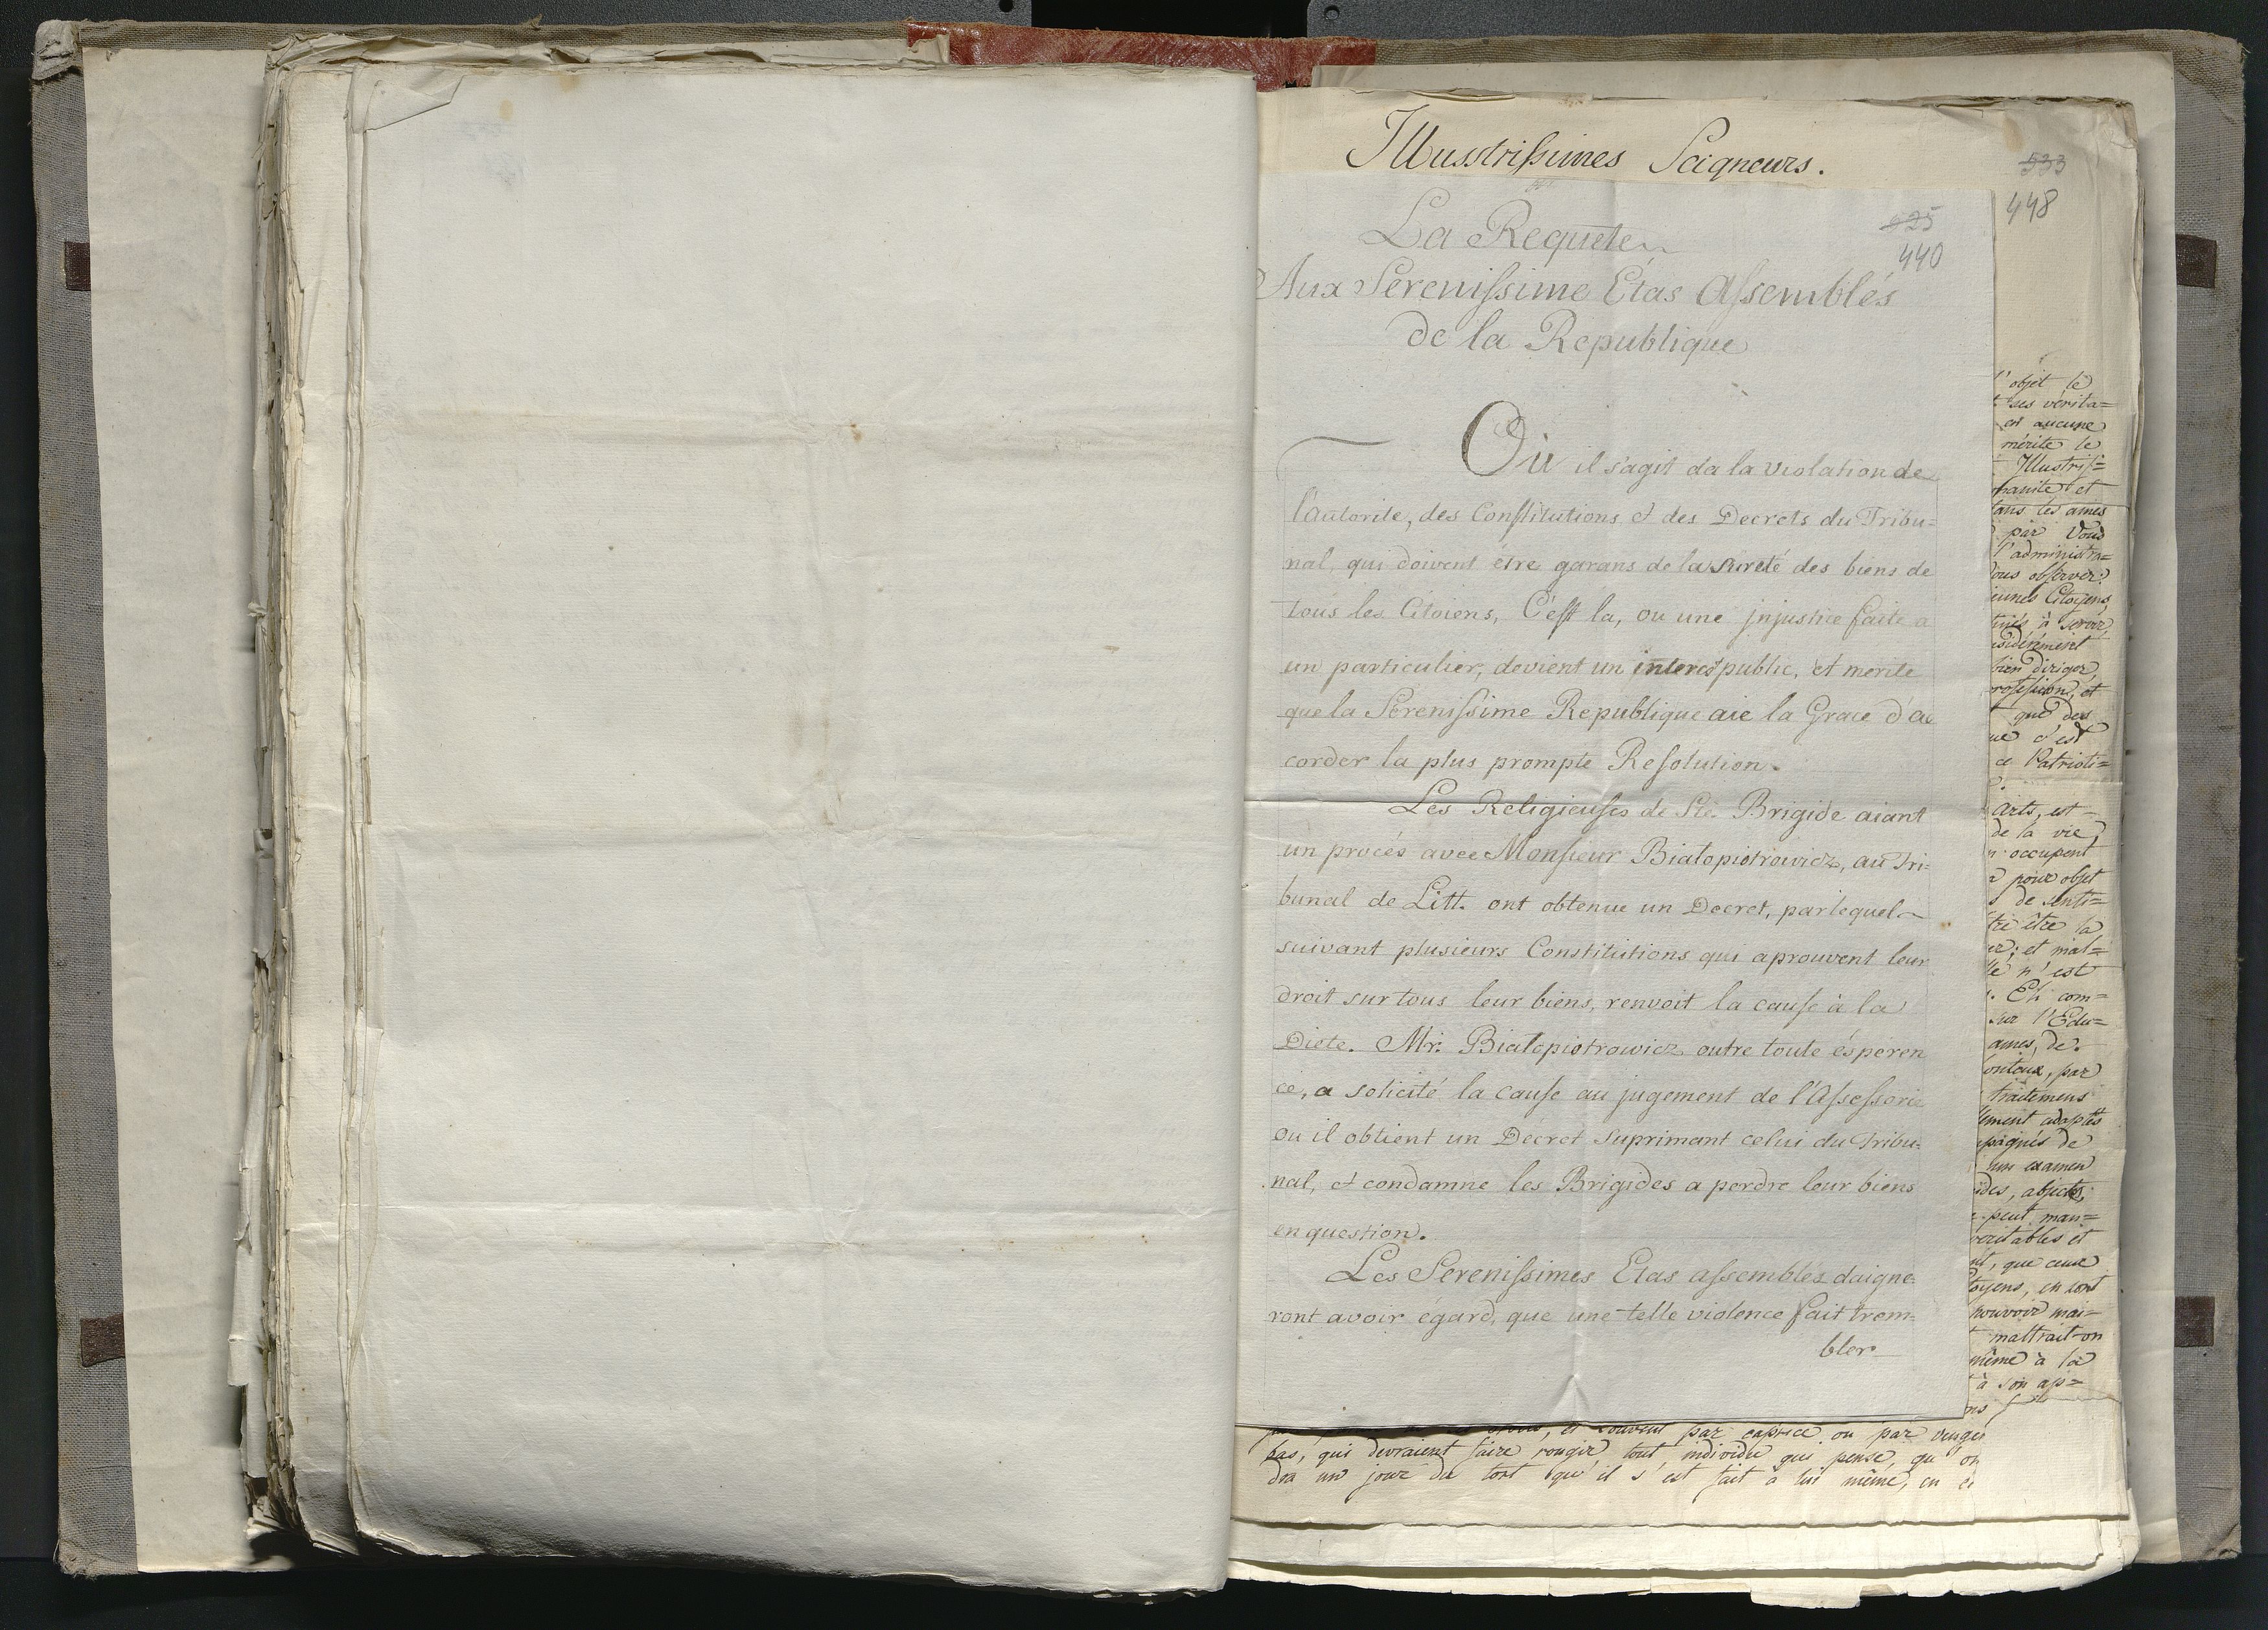 Illusstrissimes Seigneurs.
533
448
La Requete
425
440
Aux Serenissime Etas Assemblés
de la Republique
Où il s'agit da la violation de
l'autorite, des Constitutions et des Decrets du Tribu=
nal, qui doivent être garans de la sureté des biens de
tous les Citoiens, C'est la, ou une injustice faite a
un particulier, devient un interes public, et merite
que la Serenissime Republique aie la Grace d'ac
corder la plus prompte Resolution.
Les Religieuses de Ste. Brigide aiant
un procés avec Monsieur Bialopiotrowicz, au Tri=
bunal de Litt. ont obtenue un Decret, par lequel
suivant plusieurs Constitutions qui aprouvent leur
droit sur tous leur biens, renvoit la cause à la
Diete. Mr. Bialopiotrowicz outre toute ésperen
ce, a solicité la cause au jugement de l'Assessorie
ou il obtient un Decret suprimant celui du Tribu=
nal, et condamne les Brigides a perdre leur biens
en question.
Les Serenissimes Etas assemblés daigne=
ront avoir égard, que une telle violence fait trem=
bler
l'objet le
ses vérita=
en aucune
mérite le
Illustris=
manité et
dans les ames
par Vous
l'administra=
Vous observer
jeunes Citoyens,
à servir
bien diriger,
profession, et
que des
que c'est
ce Patrioti=
Arts, est
de la vie,
occupent
pour objet
de senti=
être la
er; et mal=
n'est
. Eh com=
sur l'Edu=
ames, de
honteux, par
traitemens
ment adaptés
mpagnés de
un examen
ides, abjects;
peut man=
veritables et
nt, que ceux
toyens, en sont
pouvoir mai=
maltrait-on
même à la
à son ap=
ns
et souvent par caprice ou par venge
bas, qui devraient faire rougir tout individu qui pense, qu'on
dra un jour du tort qu'il s'est fait à lui même, en